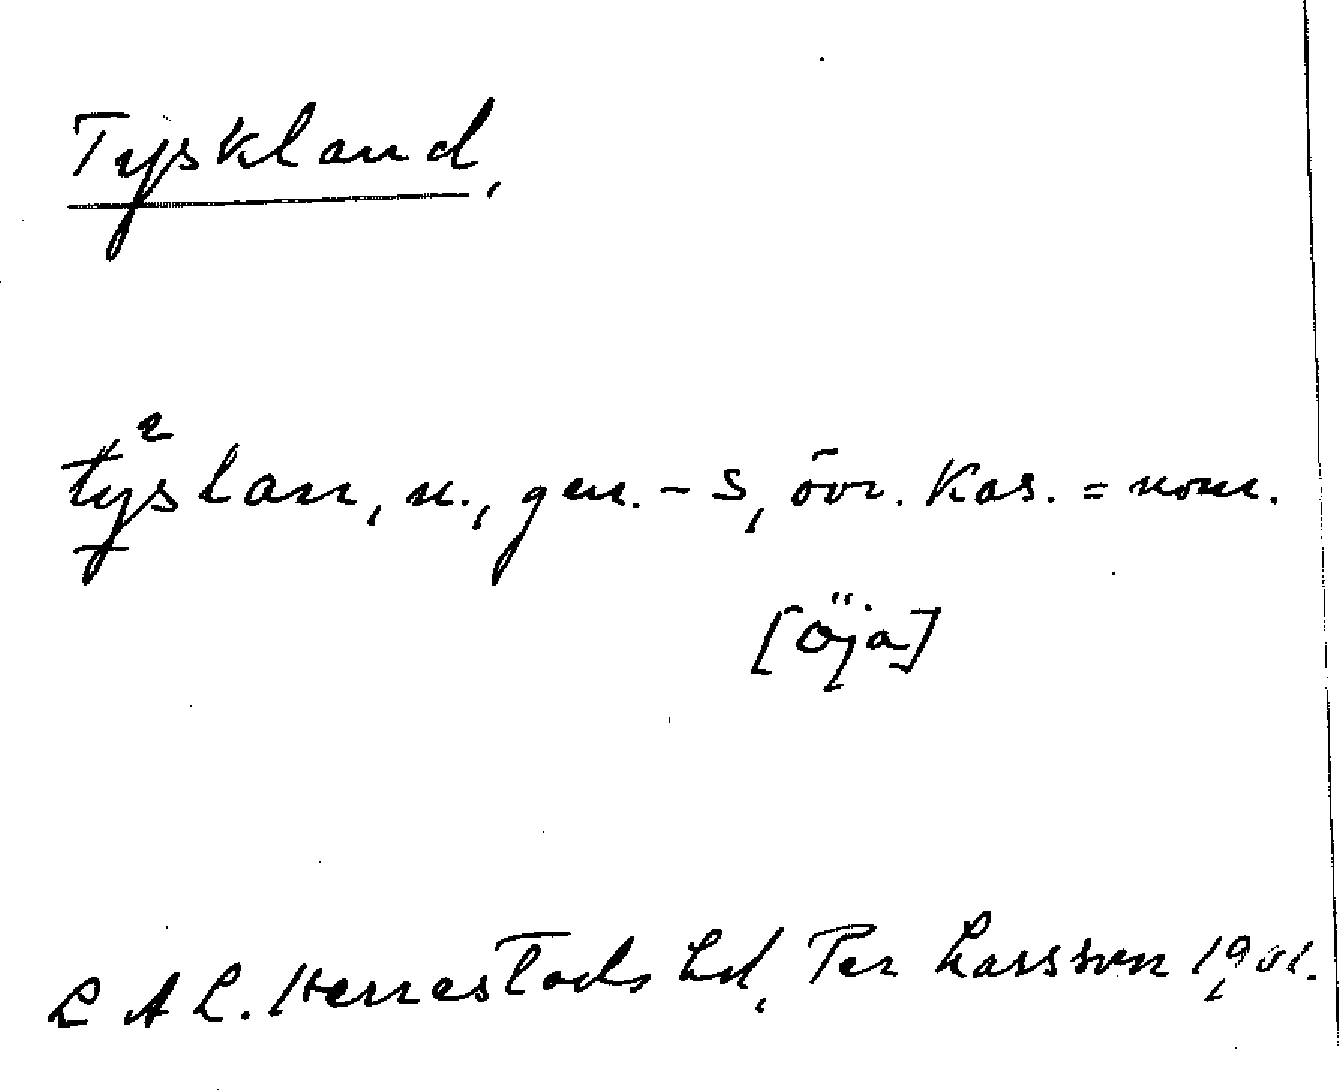 Tyskland,
ty²slan, n., gen. -s, övr. kas. = nom.
[Öja]
L A L. Herrestads hd, Per Larsson 1901.